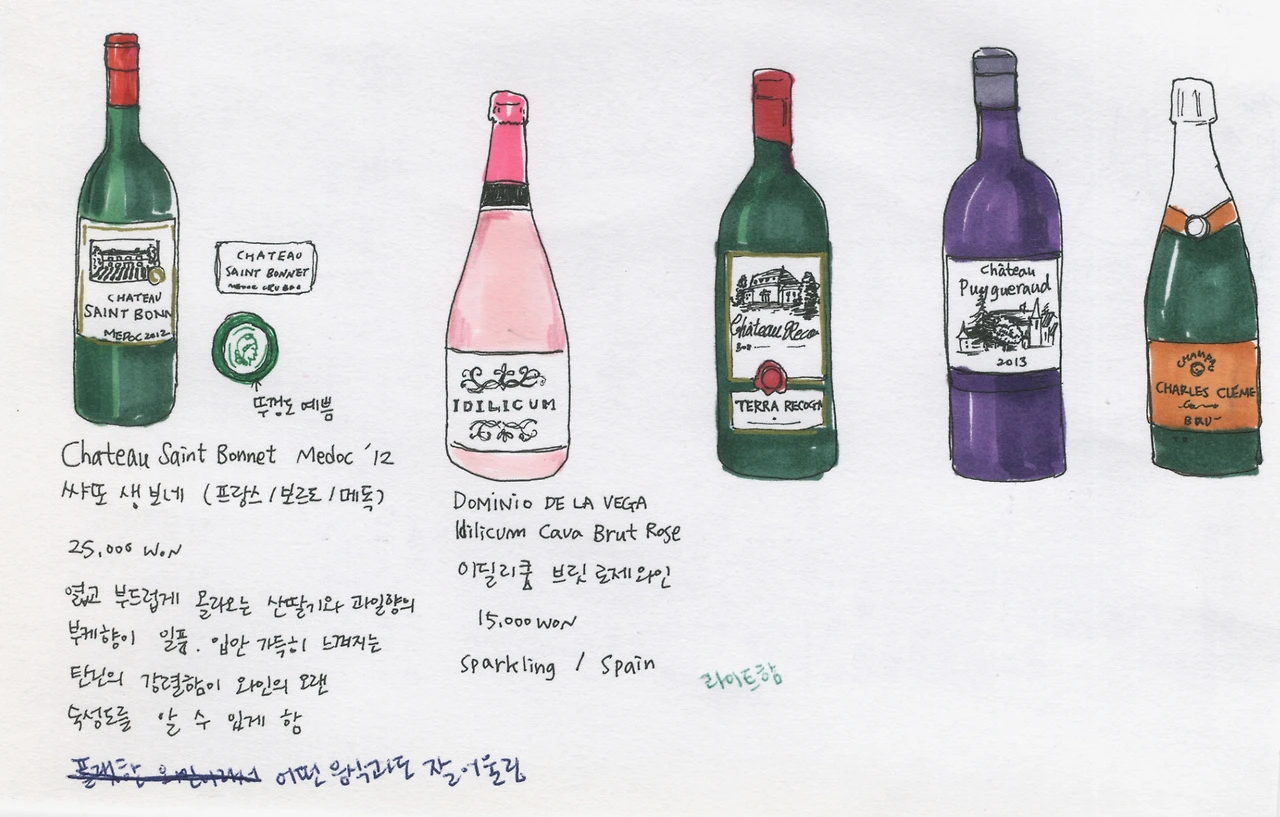 CHATEAU
SAINT BONN
MEDOC 2012
CHATEAU
SAINT BONNET
뚜껑도 예쁨
Chateau Saint Bonnet Medoc '12
쌰또 생보네 (프랑스/보르도/메독)
25,000 WON
옅고 부드럽게 올라오는 산딸기와 과일향의
부케향이 일품. 입안 가득히 느껴지는
탄닌의 강렬함이 와인의 오랜
숙성도를 알 수 있게 함
어떤 음식과도 잘 어울림
IDILICUM
DOMINIO DE LA VEGA
Idilicum Cava Brut Rose
이딜리쿰 브릿 로제와인
15,000 WON
Sparkling / Spain
Château Reco
TERRA RECOGN
라이트함
Château
Puygueraud
2013
CHAMPAG
CHARLES CLÉME
BRU